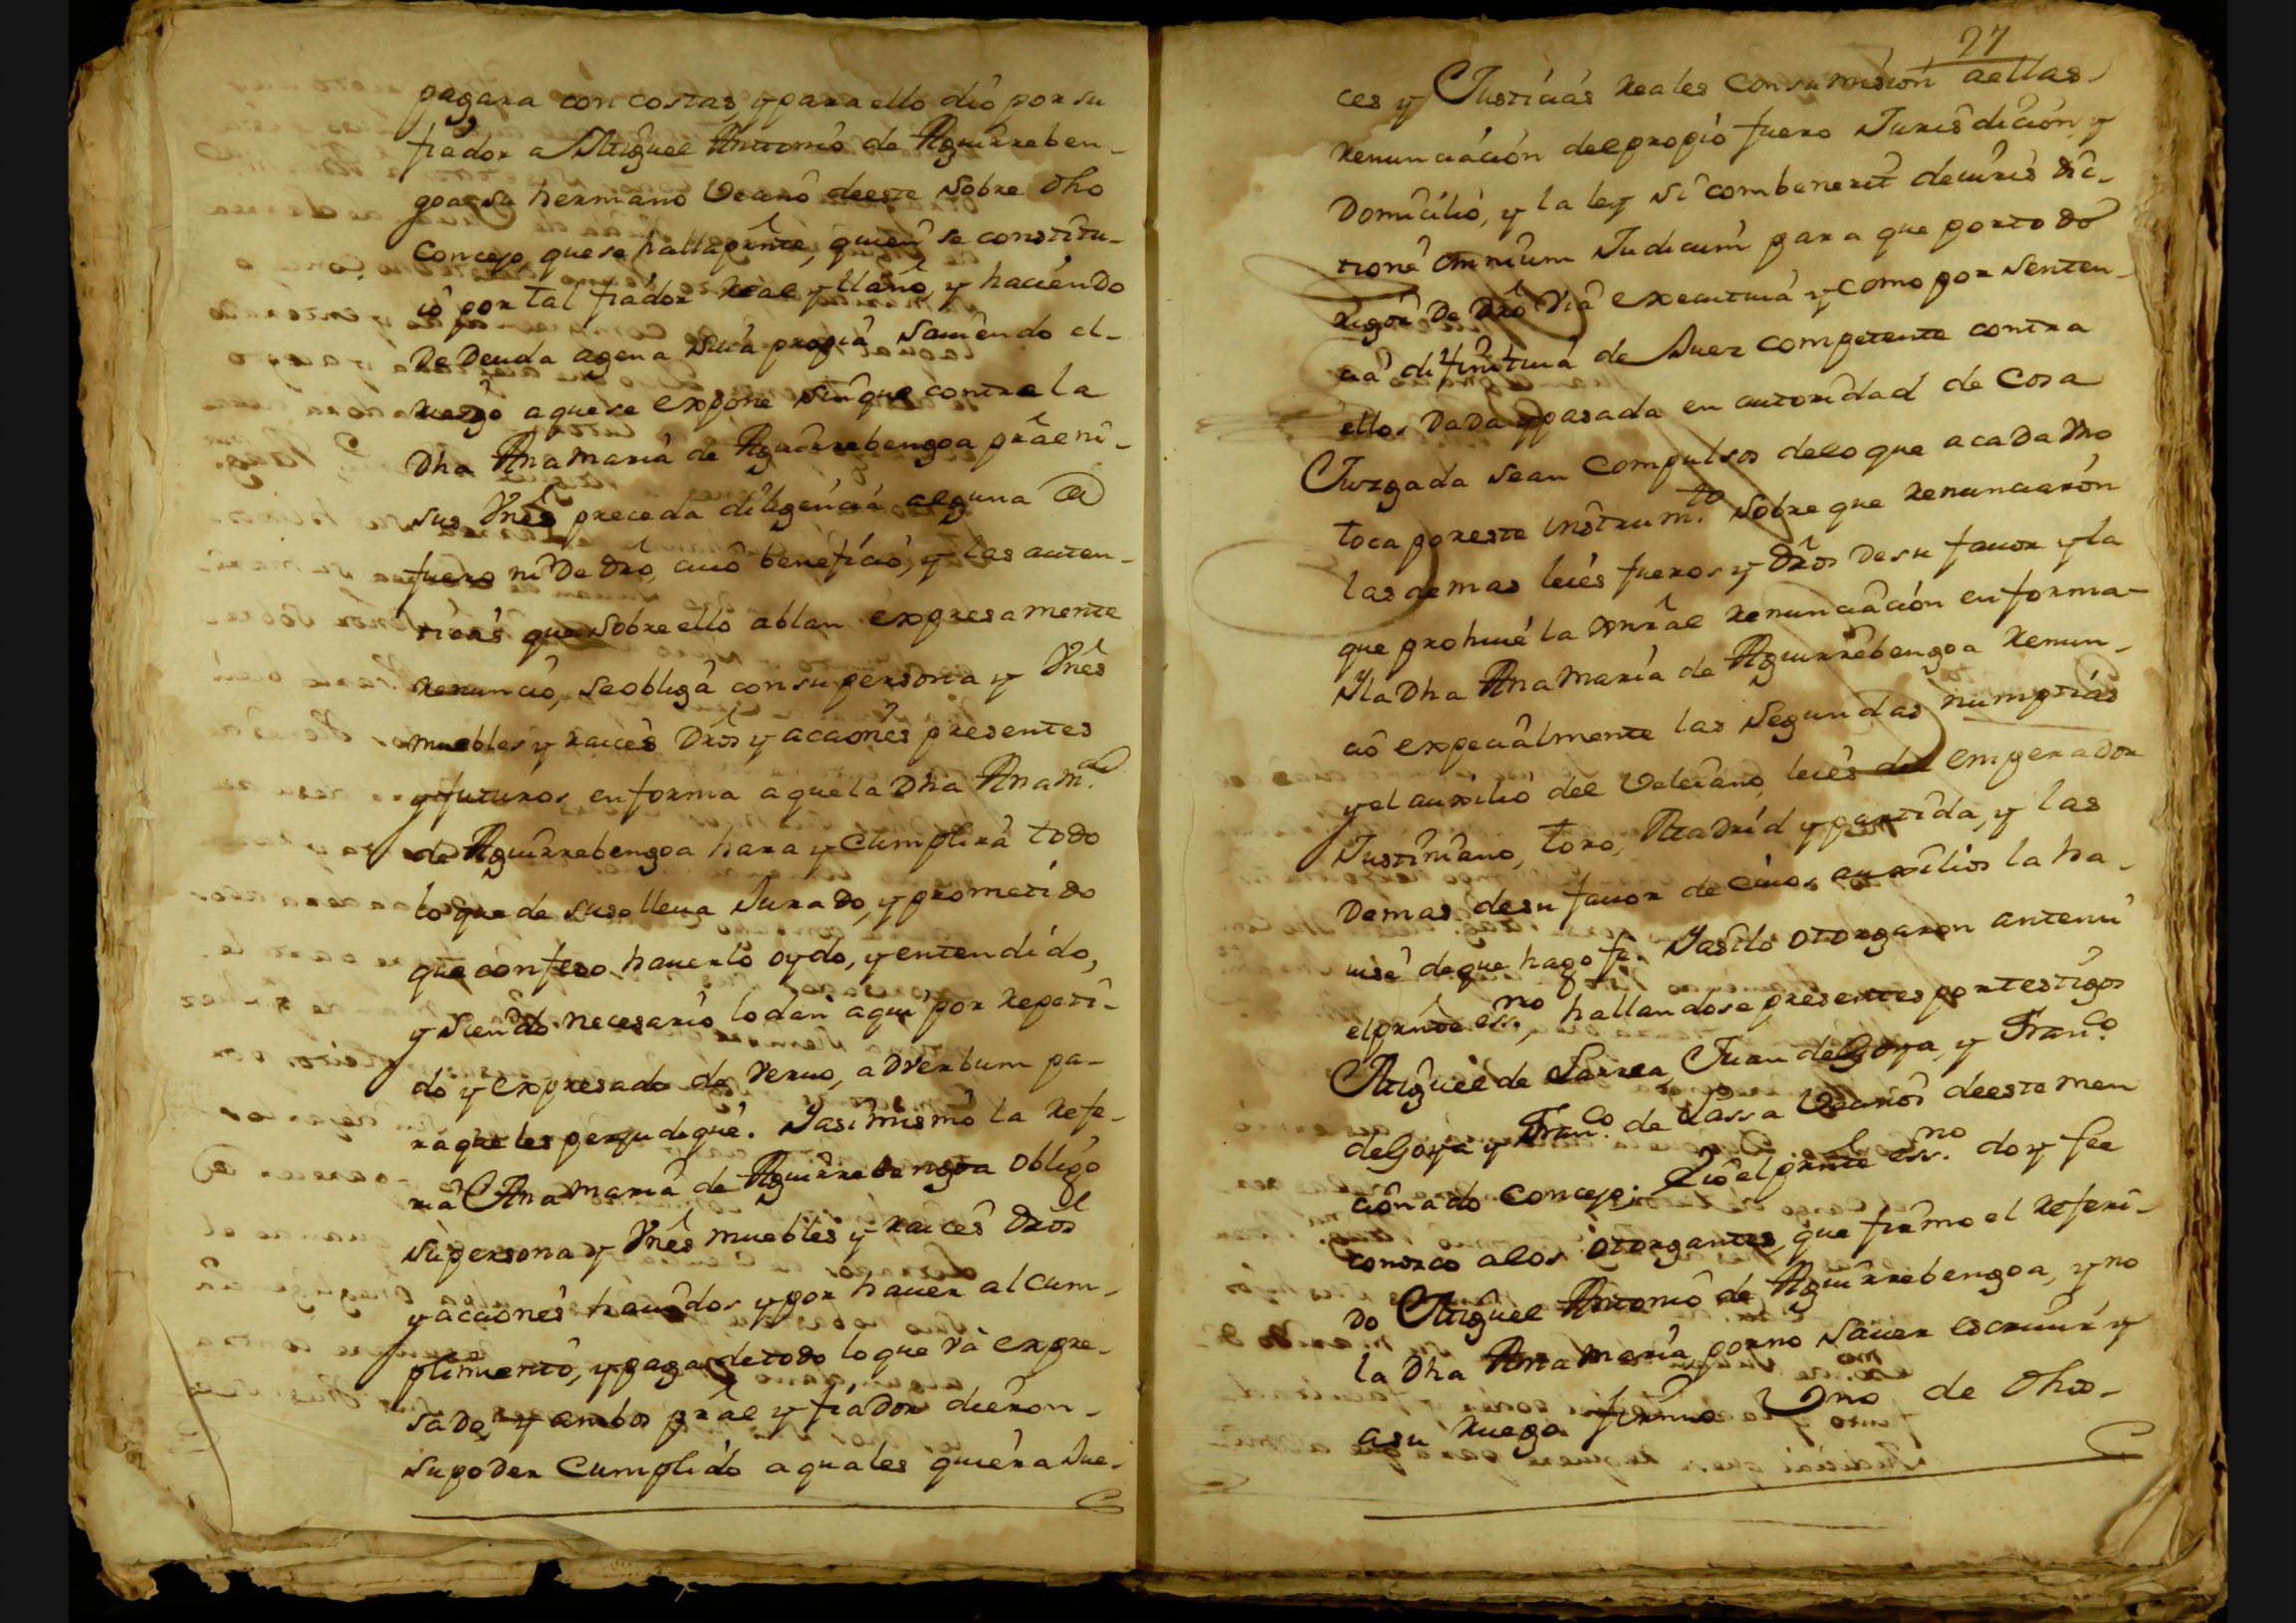 pagara con costas, y para ello dió por su
fiador a Miguel Antonio de Aguirreben-
goa su hermano Vecino deeste sobre dho
Concejo, que se halla prnte, quien se constitu-
ió por tal fiador Real y llano, y haciendo
De Deuda agena suia propia saviendo el-
riesgo aquese expone sin que contra la
Dha Ana Maria de Aguirrebengoa prâl ni-
sus Vnês preceda diligencia alguna de
fuero ni De dro, cuio beneficio, y las auten-
ticas que sobre ello ablan expresamente
Renunció, se obliga con su persona y Vnês
muebles y raices Dros y acaones presentes
y futuros en forma a que la Dha Ana M.ª
de Aguirrebengoa hara y Cumplira todo
lo que de suso lleua Jurado, y prometido
que confeso hauerlo oydo, y entendido,
y siendo necesario lo dan aqui por Repeti-
do y expresado de Veruo, ad Verbum pa-
ra que les perjudique. Y asi mismo la Refe-
rida Ana Maria de Aguirrebengoa obligo
su persona y Vnês muebles y raices dros
y acciones hauidos y por hauer al cum-
plimiento, y paga de todo lo que và expre-
sado, y ambos prâl y fiador dieron-
su poder Cumplido a quales quiera Jue-
27
ces y Justicias Reales con sumision a ellas
Renunciación del propio fuero Jurisdicion y
Domicilio, y la ley si combenerit de iuris dic-
tione omnium Judicum para que por todo
rigor De Dro via executiua y como por senten-
cia difinitiua de Juez competente contra
ellos Dada y pasada en autoridad de Cosa
Juzgada sean Compulsos delo que a cada vno
toca por este instrum.to sobre que Renunciaron
las demas leies fueros y Dros de su fauor y la
que prohiue la gnrâl Renunciación en forma-
Y la Dha Ana Maria de Aguirrebengoa Renun-
ció especialmente las Segundas numptias
y el auxilio del Veleiano, leies del emperador
Justiniano, Toro, Madrid y partida, y las
Demas de su fauor de cuios auxilios la ha-
uise de que hago fe. Y asi lo otorgaron ante mi
el prnte ess.no hallandose presentes por testigos
Miguel de Larrea, Juan de Goya, y Fran.co
de Goya y Fran.co de Lassa Vecinos deeste men
cionado Concejo. E io el prnte ess.no doy fee
conozco alos otorgantes, que firmo el Referi-
do Miguel Antonio de Aguirrebengoa, y no
la Dha Ana Maria por no sauer escriuir y
a su ruego firmo Vno de dhos-